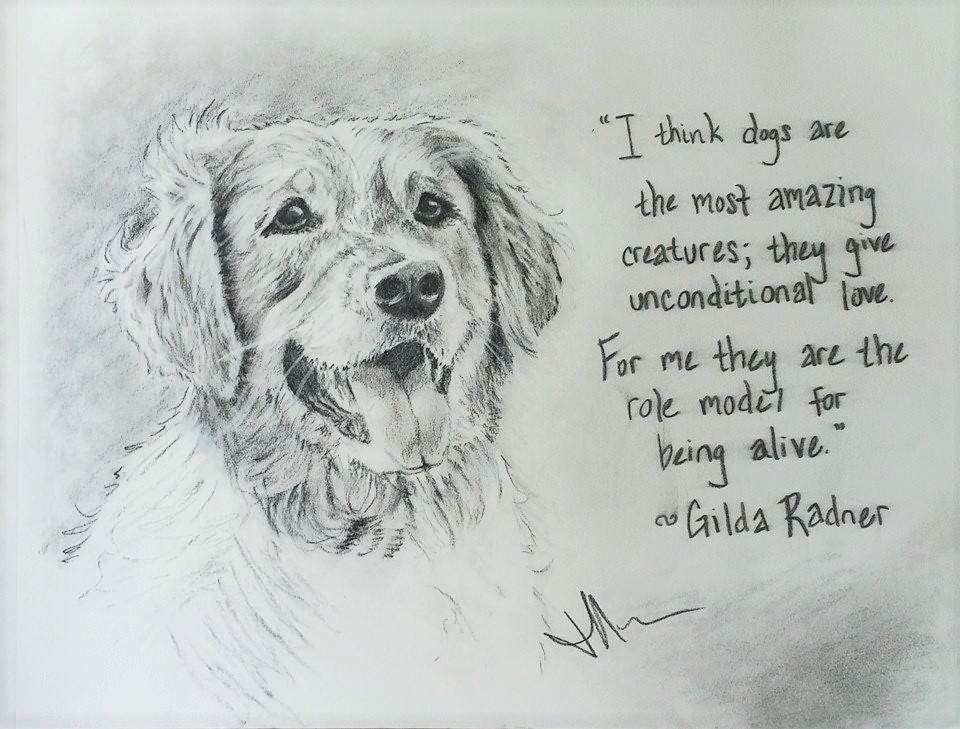 "I think dogs are
the most amazing
creatures; they give
unconditional love.
For me they are the
role model for
being alive."
~ Gilda Radner